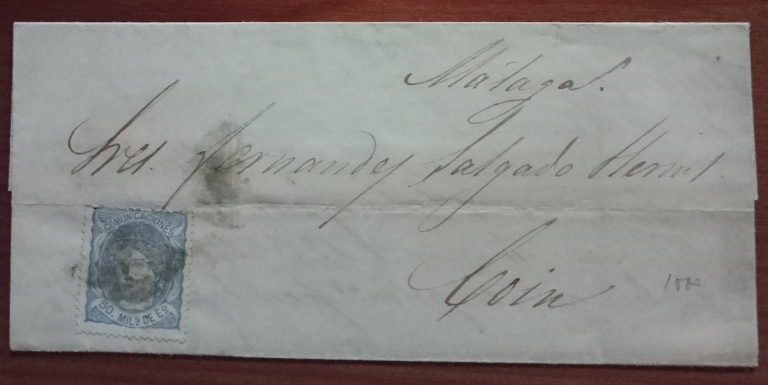 Málaga.
Sres. Fernandez Salgado Herms.
Coin
COMUNICACIONES
50. MILS DE EO